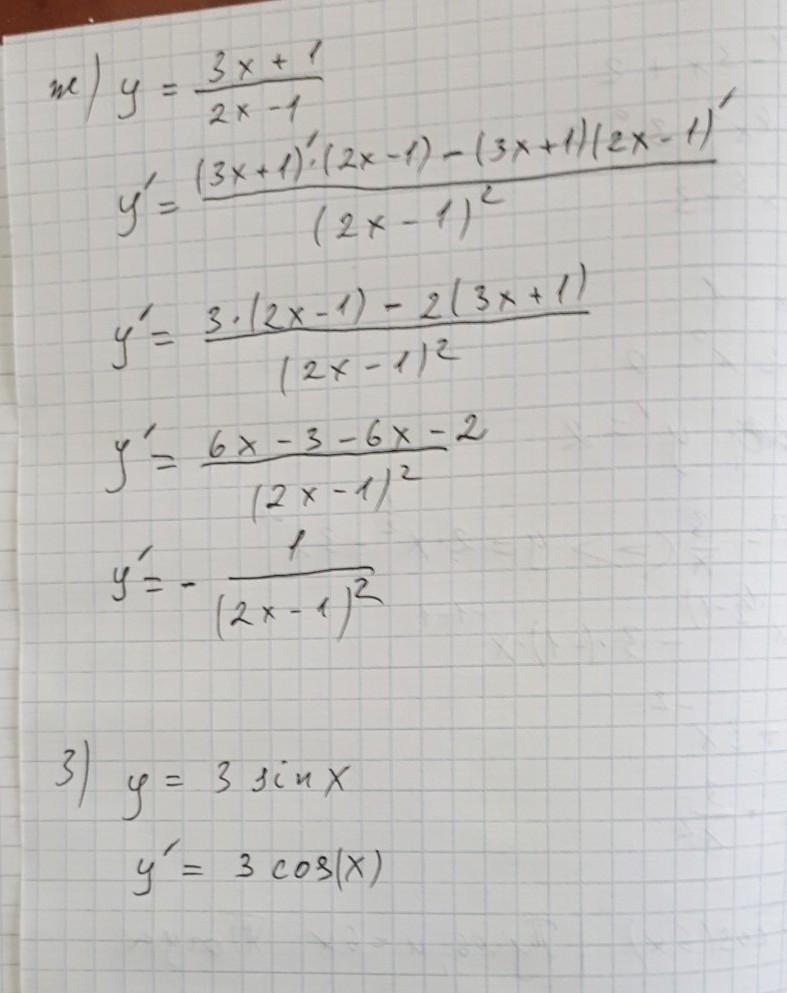 ж) y = (3x + 1)/(2x - 1)
y' = ((3x+1)'·(2x-1) - (3x+1)(2x-1)')/(2x-1)²
y' = (3·(2x-1) - 2(3x+1))/(2x-1)²
y' = (6x - 3 - 6x - 2)/(2x-1)²
y' = - 1/(2x-1)²
з) y = 3 sin x
y' = 3 cos(x)